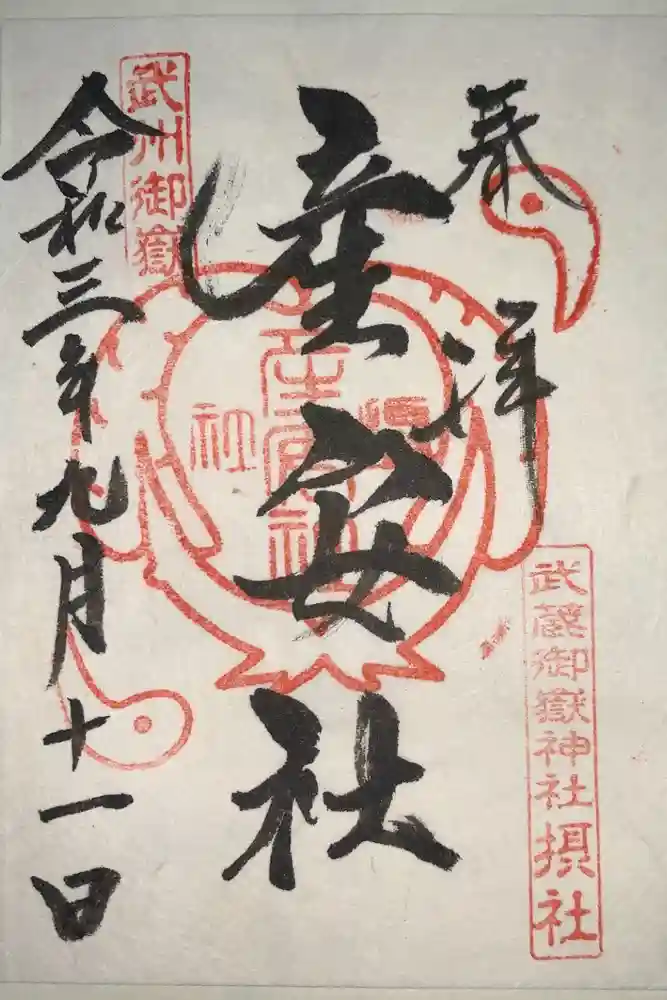 奉拝
武蔵御嶽神社摂社
産安社
武州御嶽
令和三年九月十一日